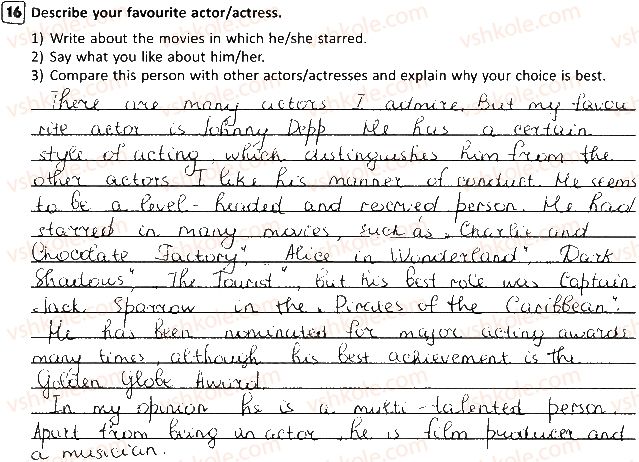 16 Describe your favourite actor/actress.
1) Write about the movies in which he/she starred.
2) Say what you like about him/her.
3) Compare this person with other actors/actresses and explain why your choice is best.
There are many actors I admire. But my favou
rite actor is Johnny Depp. He has a certain
style of acting, which distinguishes him from the
other actors. I like his manner of conduct. He seems
to be a level-headed and reserved person. He had
starred in many movies, such as „Charlie and
Chocolate Factory", „Alice in Wonderland", „Dark
Shadows", „The Tourist", but his best role was Captain
Jack Sparrow in the „Pirates of the Caribbean".
He has been nominated for major acting awards
many times, although his best achievement is the
Golden Globe Award.
In my opinion he is a multi-talented person.
Apart from being an actor, he is film producer and
a musician.
vshkole.com